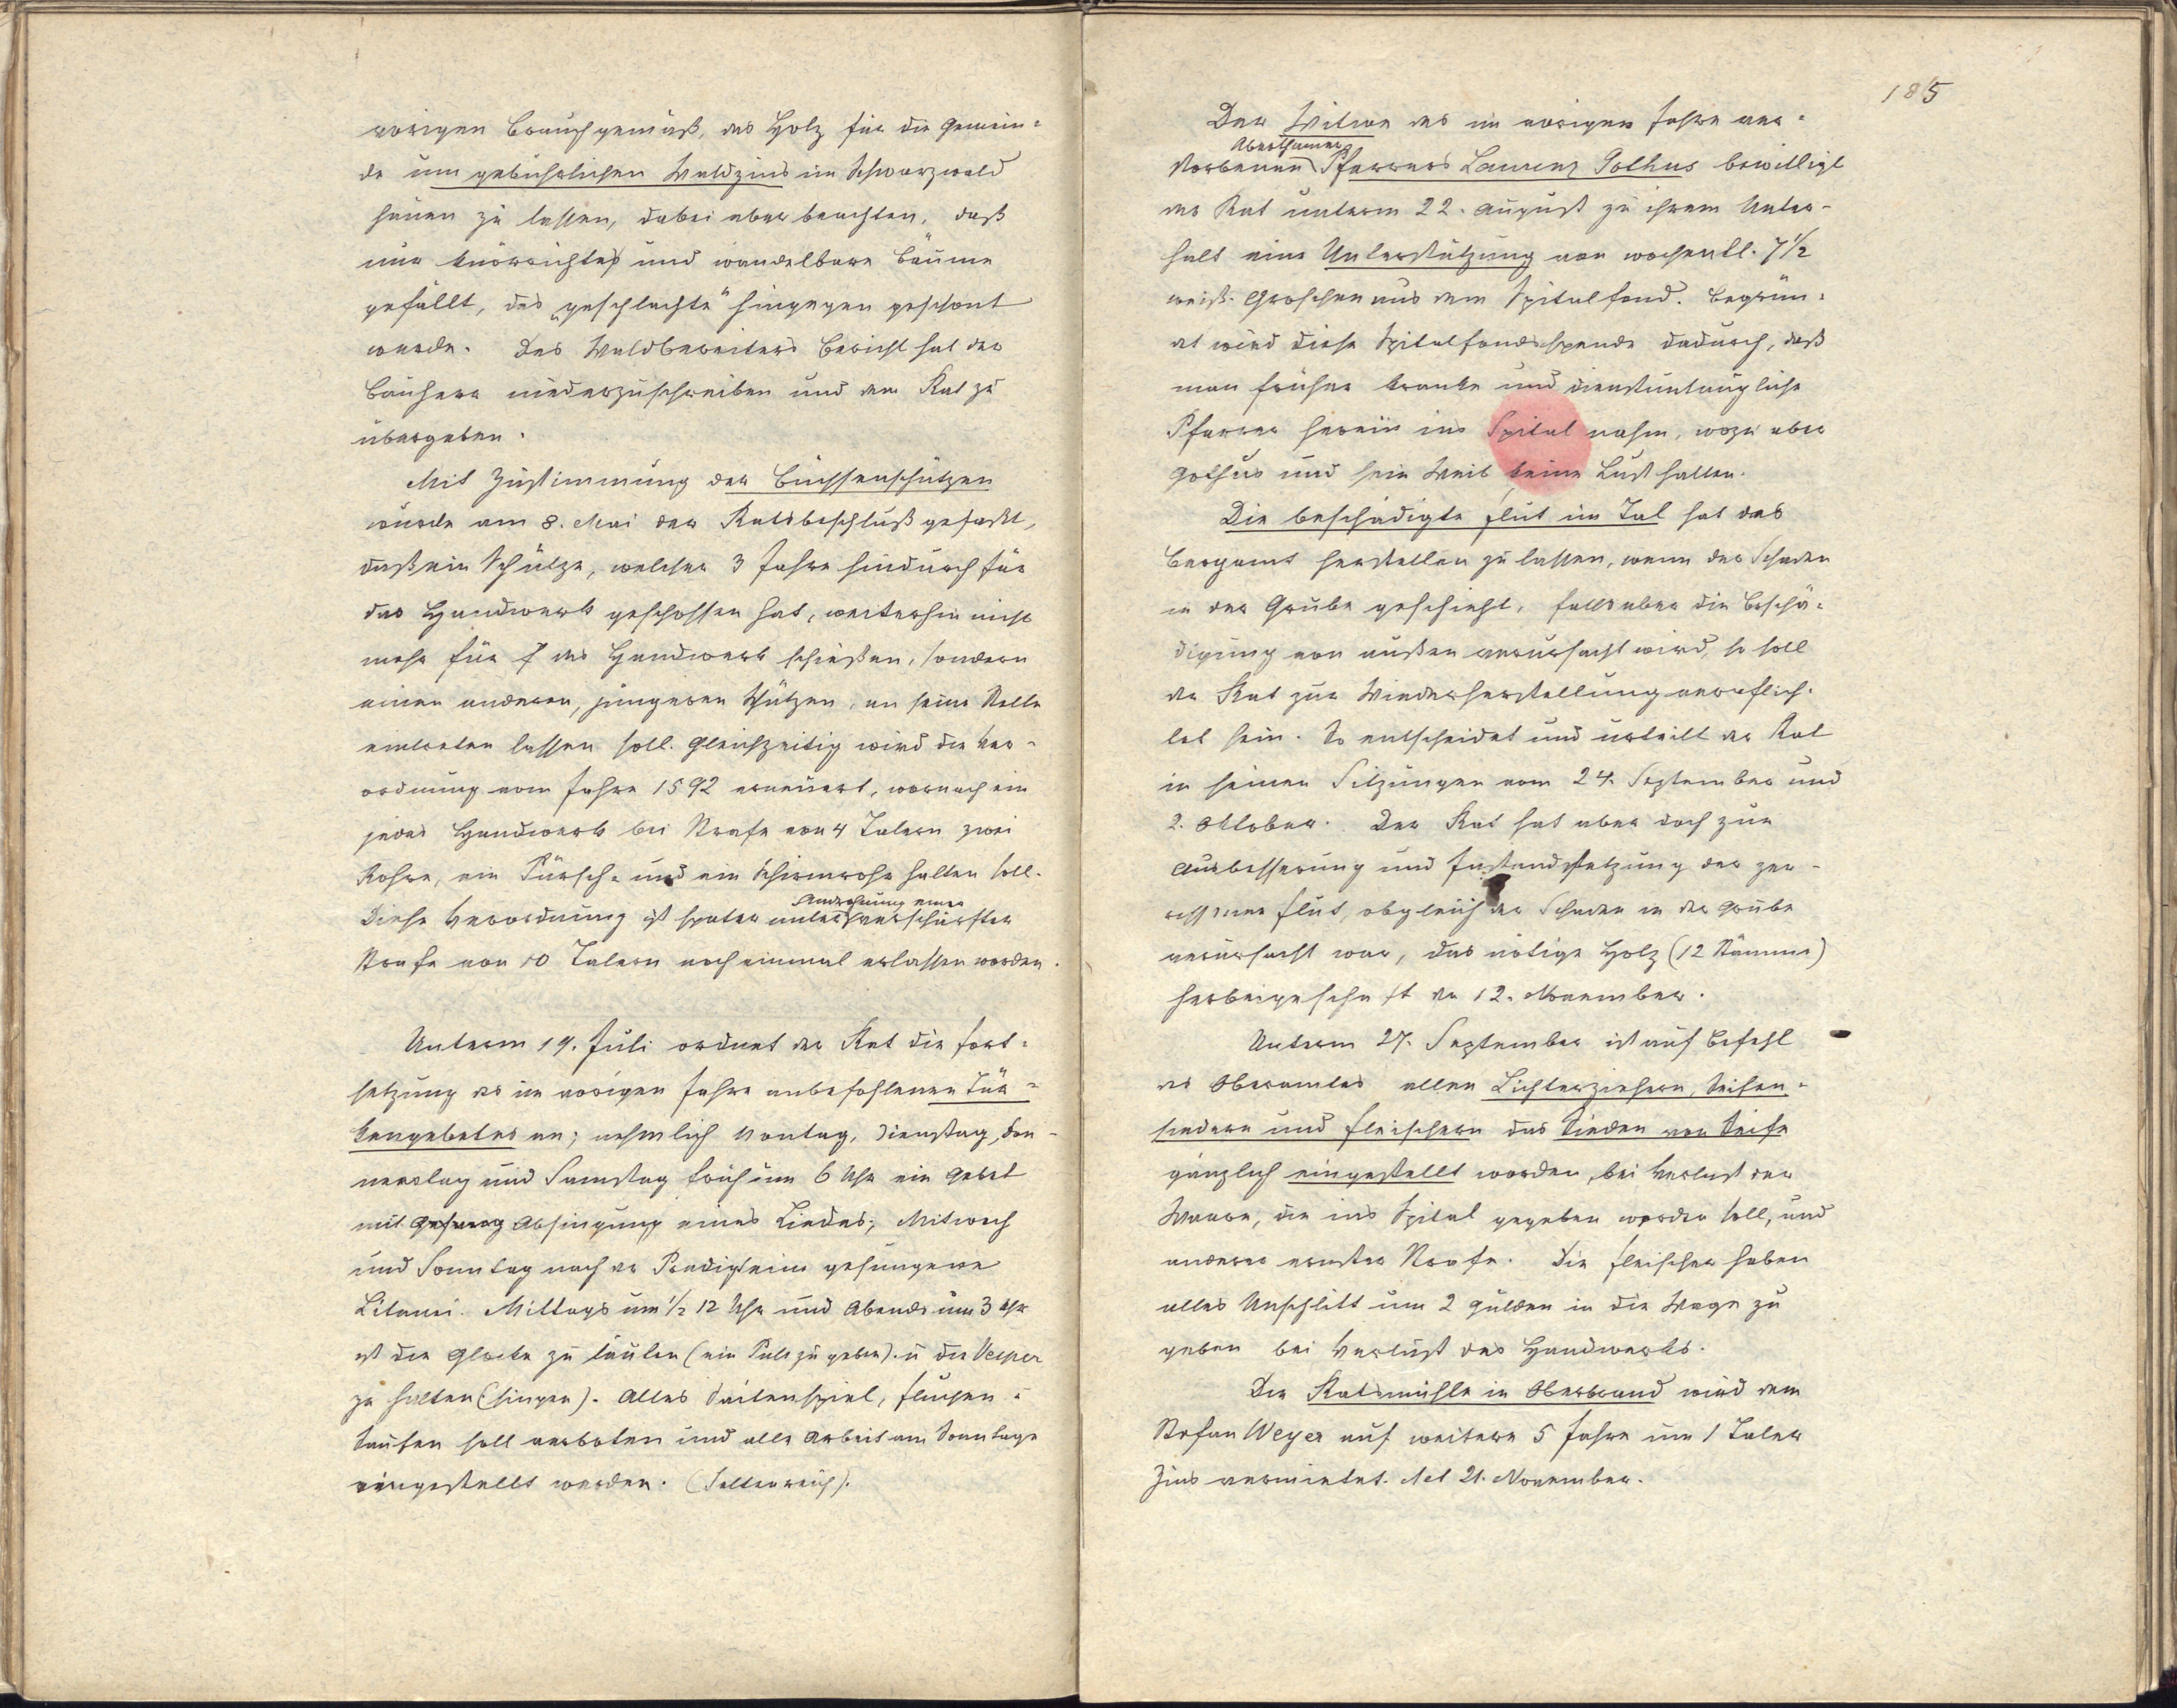 vorigen Brauch gemäß, das Holz für die Gemein-
de um gebührlichen Waldzins im Schwarzwald
hauen zu lassen, dabei aber beachten, daß
nur knörrichtes und wandelbare Bäume
gefällt, das „geschlachte“ hingegen geschont
werde. Des Waldbereiters Bericht hat der
Bauherr niederzuschreiben und dem Rat zu
übergeben.
Mit Zustimmung der Büchsenschützen
wurde am 8. Mai der Ratsbeschluß gefaßt,
daß ein Schütze, welcher 3 Jahre hindurch für
das Handwerk geschossen hat, weiterhin nicht
mehr für das Handwerk schießen, sondern
einen anderen, jüngeren Schützen, an seine Stelle
eintreten lassen soll. Gleichzeitig wird die Ver-
ordnung vom Jahre 1592 erneuert, wornach ein
jedes Handwerk bei Strafe von 4 Talern zwei
Rohre, ein Pürsch- und ein Schirmrohr halten soll.
Androhung einer
Diese Verordnung ist später unter verschärfter
Strafe von 10 Talern noch einmal erlassen worden.
Unterm 19. Juli ordnet der Rat die Fort-
setzung des im vorigen Jahre anbefohlenen Tür-
kengebetes an; nehmlich Montag, Dienstag, Don-
nerstag und Samstag früh um 6 Uhr ein Gebet
mit Gesang Absingung eines Liedes; Mitwoch
und Sonntag nach der Predigt eine gesungene
Litanei. Mittags um 1/2 12 Uhr und Abends um 3 Uhr
ist die Glocke zu läuten (ein Puls zu geben). u die Vesper
zu halten (singen). Alles Saitenspiel, Fluchen u
Saufen soll verboten und alle Arbeit am Sonntage
eingestellt werden. (Seltenreich).
185
Der Witwe des im vorigen Jahre ver-
Aberthamer
storbenen Pfarrers Laurenz Gothus bewilligt
der Rat unterm 22. August zu ihrem Unter-
halt eine Unterstützung von wochentl. 7 1/2
weiß. Groschen aus dem Spitalfond. Begrün-
det wird diese Spitalfondsspende dadurch, daß
man früher kranke und dienstuntaugliche
Pfarrer herein ins Spital nahm, wozu aber
Gothus und sein Weib keine Lust hatten.
Die beschädigte Flut im Tal hat das
Bergamt herstellen zu lassen, wenn der Schaden
in der Grube geschieht, falls aber die Beschä-
digung von außen verursacht wird, so soll
der Rat zur Wiederherstellung verpflich-
tet sein. So entscheidet und urteilt der Rat
in seinen Sitzungen vom 24. September und
2. Oktober. Der Rat hat aber doch zur
Ausbesserung und Instandsetzung der zer-
rissenen Flut, obgleich der Schaden in der Grube
verursacht war, das nötige Holz (12 Stämme)
herbeigeschafft den 12. November.
Unterm 27. September ist auf Befehl
des Oberamtes allen Lichterziehern, Seifen-
siedern und Fleischern das Sieden von Seife
gänzlich eingestellt worden, bei Verlust der
Waare, die ins Spital gegeben werden soll, und
anderer ernster Strafe. Die Fleischer haben
alles Unschlitt um 2 Gulden in die Wage zu
geben bei Verlust des Handwerks.
Die Ratsmühle in Oberbrand wird dem
Stefan Weyer auf weitere 5 Jahre um 1 Taler
Zins vermietet. Act 21. November.